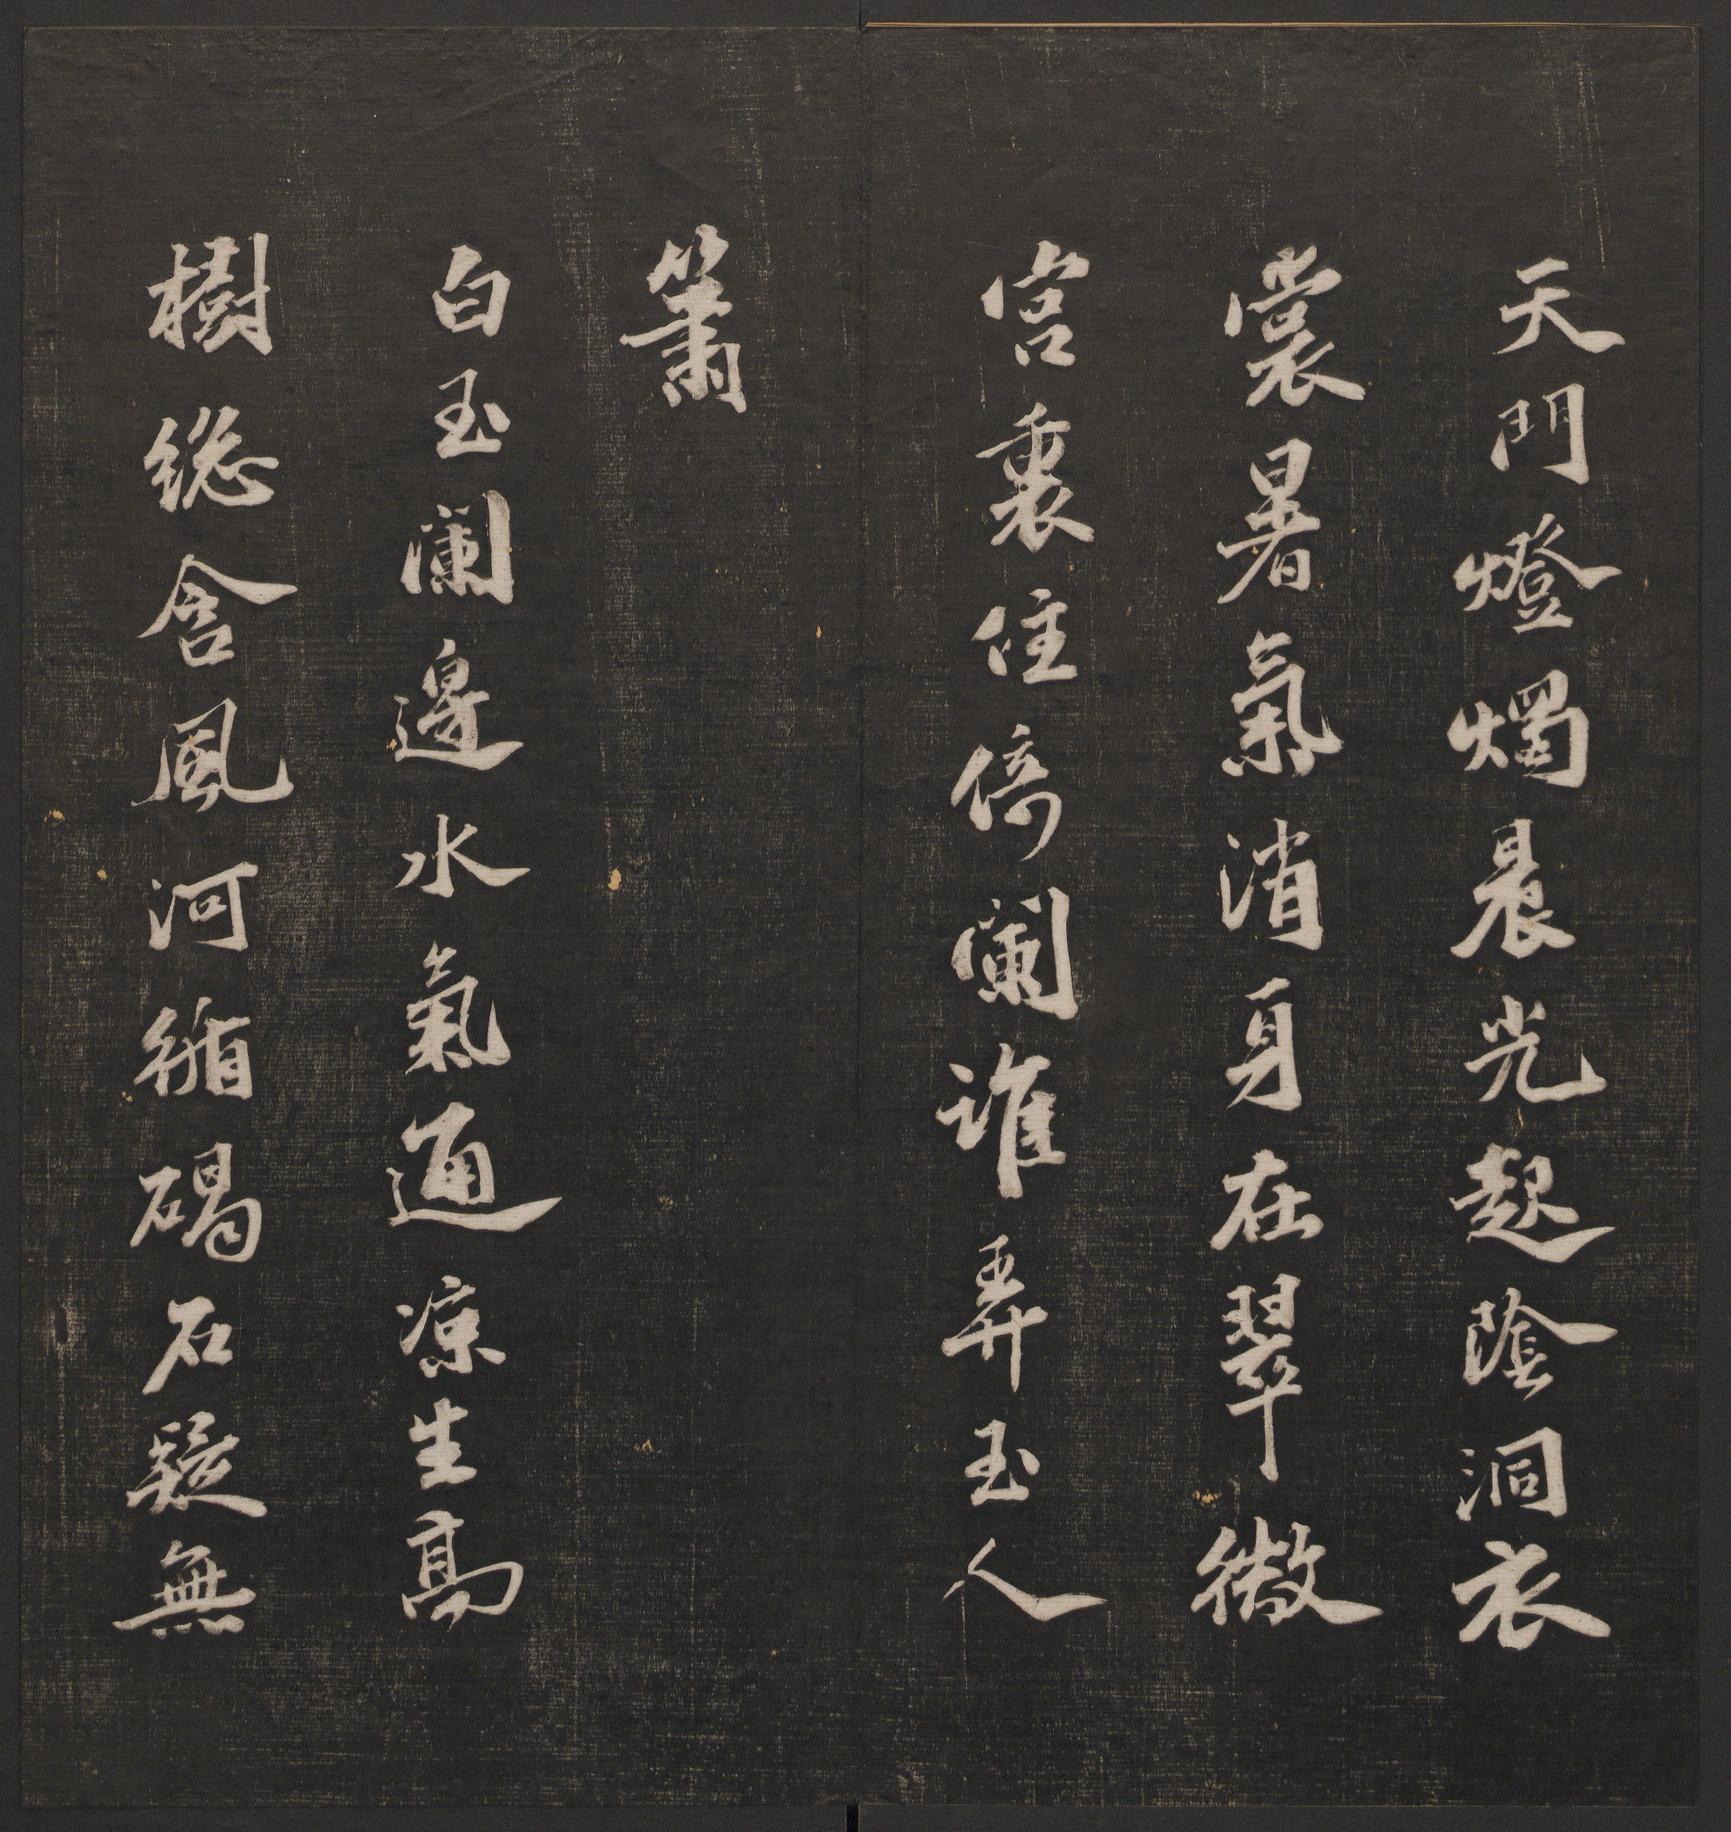 天門燈燭晨光起陰洞衣
裳暑氣消身在翠微
宮裏住倚闌誰弄玉人
簫
白玉闌邊水氣通凉生高
樹總含風河循碣石疑無